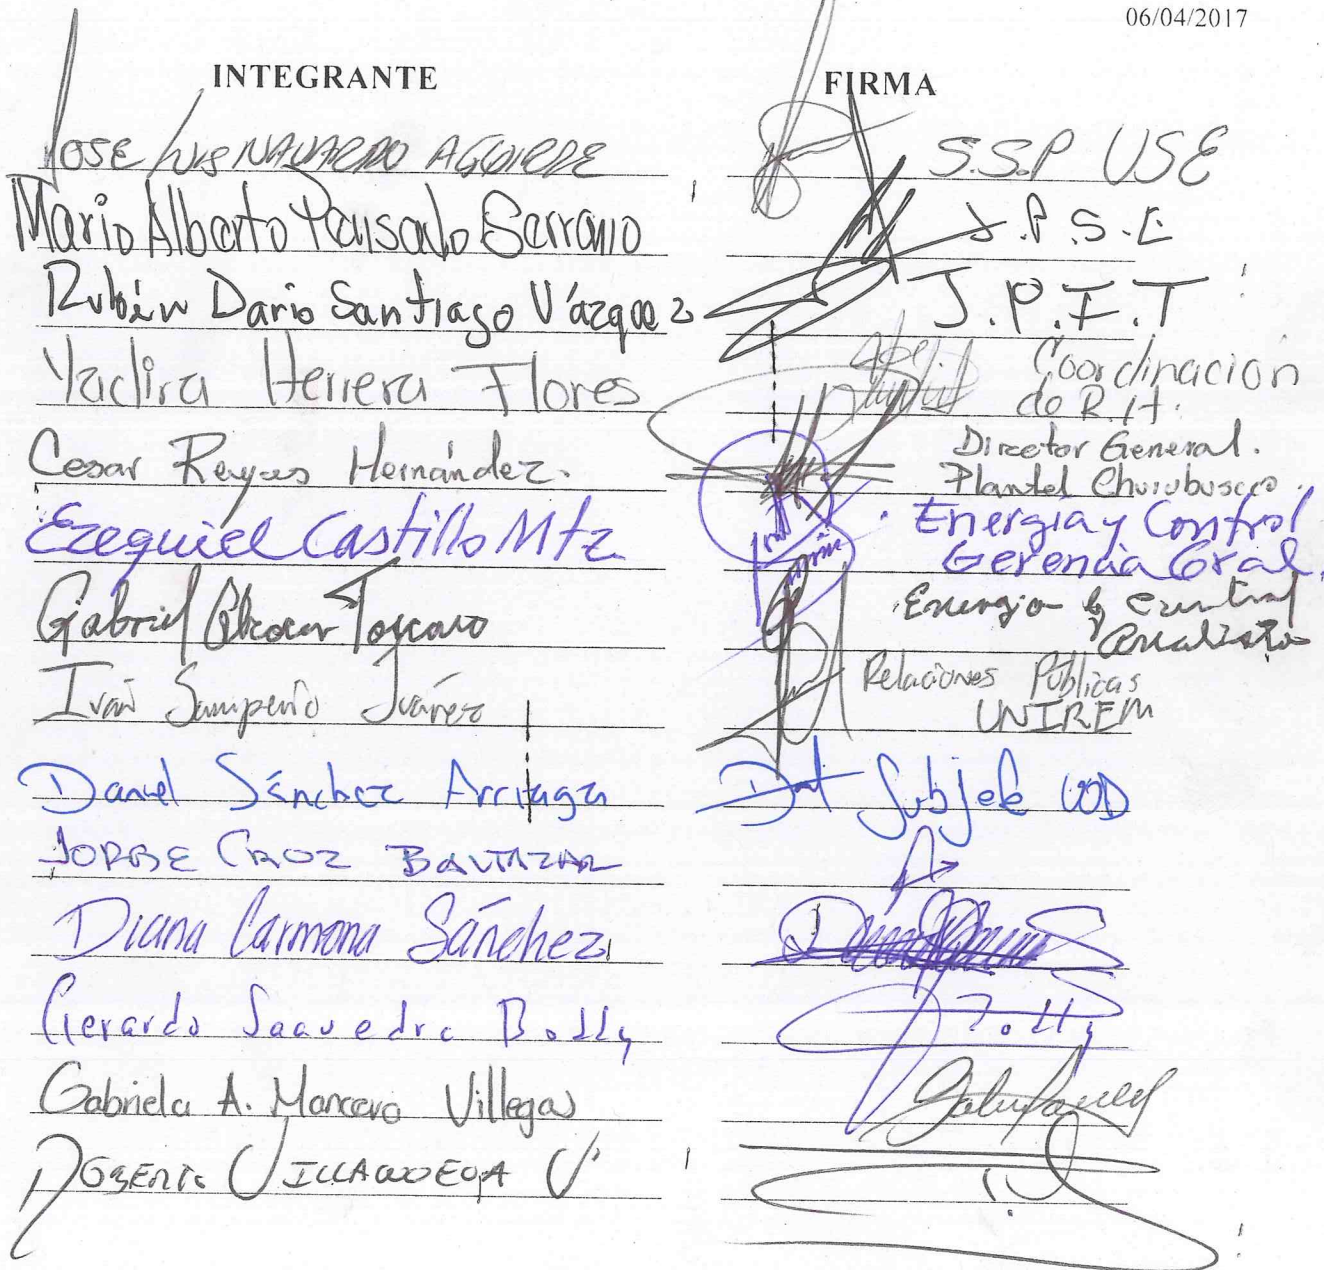 06/04/2017
INTEGRANTE FIRMA
JOSE LUIS NAVARRO AGUIRRE S.S.P USE
Mario Alberto Serrano J.P.S.E
Rubén Dario Santiago Vázquez J.P.I.T
Yadira Herrera Flores Coordinacion
de R.H.
Cesar Reyes Hernández. Director General.
Plantel Churubusco.
Ezequiel Castillo Mtz Energia y Control
Gerencia Gral.
Gabriel Toscano Energia y Control
Iván Samperio Juárez Relaciones Públicas
UNIREM
Daniel Sánchez Arriaga Subjefe UOD
JORGE CRUZ BALTAZAR
Diana Carmona Sánchez
Gerardo Saavedra
Gabriela A. Mancera Villegas